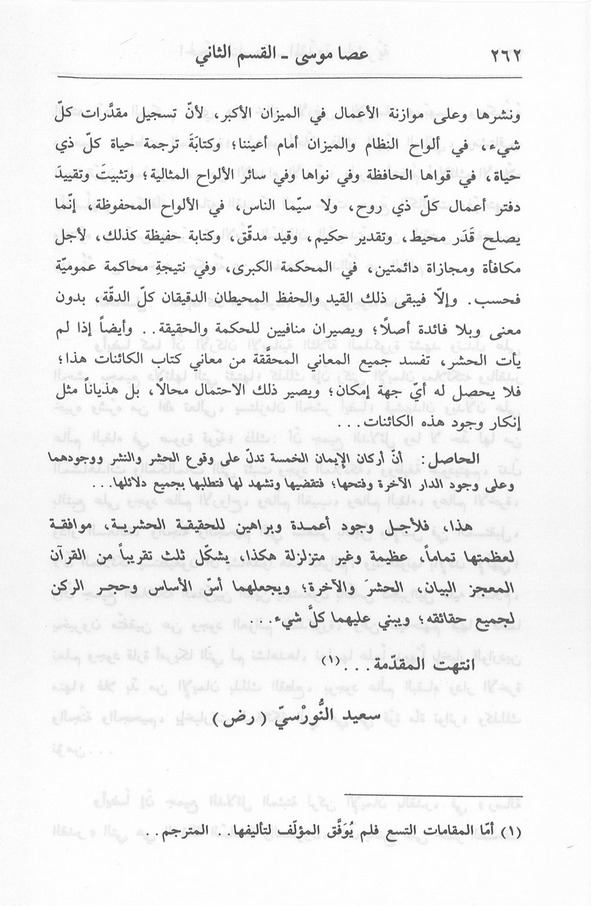 ٢٦٢ عصا موسى - القسم الثاني
ونشرها وعلى موازنة الأعمال في الميزان الأكبر، لأنّ تسجيل مقدَّرات كلّ
شيء، في ألواح النظام والميزان أمام أعيننا؛ وكتابَةَ ترجمة حياة كلّ ذي
حياة، في قواها الحافظة وفي نواها وفي سائر الألواح المثالية؛ وتثبيتَ وتقييدَ
دفتر أعمال كلّ ذي روح، ولا سيّما الناس، في الألواح المحفوظة، إنّما
يصلح قَدَر محيط، وتقدير حكيم، وقيد مدقّق، وكتابة حفيظة كذلك، لأجل
مكافأة ومجازاة دائمتين، في المحكمة الكبرى، وفي نتيجةِ محاكمة عموميّة
فحسب. وإلّا فيبقى ذلك القيد والحفظ المحيطان الدقيقان كلّ الدقّة، بدون
معنى وبلا فائدة أصلًا؛ ويصيران منافيين للحكمة والحقيقة.. وأيضاً إذا لم
يأت الحشر، تفسد جميع المعاني المحقَّقة من معاني كتاب الكائنات هذا؛
فلا يحصل له أيّ جهة إمكان؛ ويصير ذلك الاحتمال محالًا، بل هذياناً مثل
إنكار وجود هذه الكائنات...
الحاصل: أنّ أركان الإيمان الخمسة تدلّ على وقوع الحشر والنشر ووجودهما
وعلى وجود الدار الآخرة وفتحها؛ فتقتضيها وتشهد لها فتطلبها بجميع دلائلها...
هذا، فلأجل وجود أعمدة وبراهين للحقيقة الحشرية، موافقة
لعظمتها تماماً، عظيمة وغير متزلزلة هكذا، يشكّل ثلث تقريباً من القرآن
المعجز البيان، الحشرَ والآخرة؛ ويجعلهما أسّ الأساس وحجر الركن
لجميع حقائقه؛ ويبني عليهما كلَّ شيء...
انتهت المقدّمة...(١)
سعيد النُّورْسيّ (رض)
(١) أمّا المقامات التسع فلم يُوَفَّق المؤلّف لتأليفها.. المترجم..